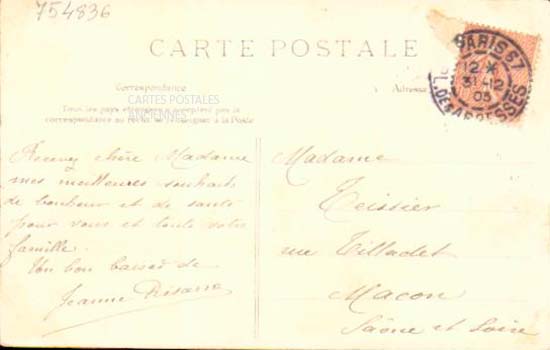 754836
CARTE POSTALE
Correspondance
Adresse
Tous les pays étrangers n'acceptent pas la
correspondance au recto, se renseigner à la Poste
CARTES POSTALES
ANCIENNES
PARIS 67
12 *
31-12
05
Recevez chère Madame
mes meilleures souhaits
de bonheur et de santé
pour vous et toute votre
famille.
Un bon baiser de
Jeanne
Madame
Teissier
rue Tilladet
Macon
Saône et Loire